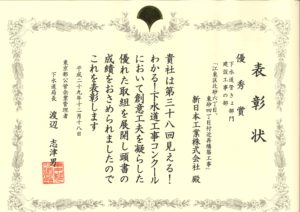 表彰状
優秀賞
下水道管きょ部門
建設工事の部
「江東区北砂六丁目、東砂四丁目付近再構築工事」
新日本工業株式会社 殿
貴社は第三十八回見える!
わかる!下水道工事コンクール
において創意工夫を凝らした
優れた取組を展開し頭書の
成績をおさめられましたので
これを表彰します
平成二十九年十二月十八日
東京都公営企業管理者
下水道局長 渡辺 志津男